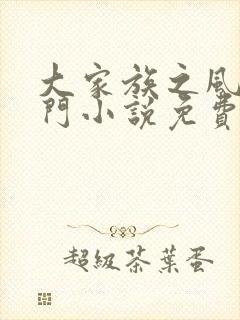 大家族之風
門小說免費
超級茶葉蛋